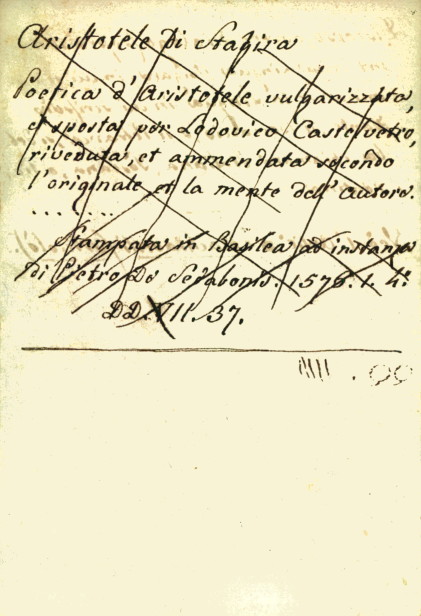 Aristotele Di Stagira
Poetica d'Aristotele vulgarizzata,
et sposta per Lodovico Castelvetro,
riveduta, et ammendata secondo
l'originale et la mente dell' autore.
.......
Stampata in Basilea ad instanza
di Pietro De Sedabonis. 1576. 1. 4º
DD. VII. 37.